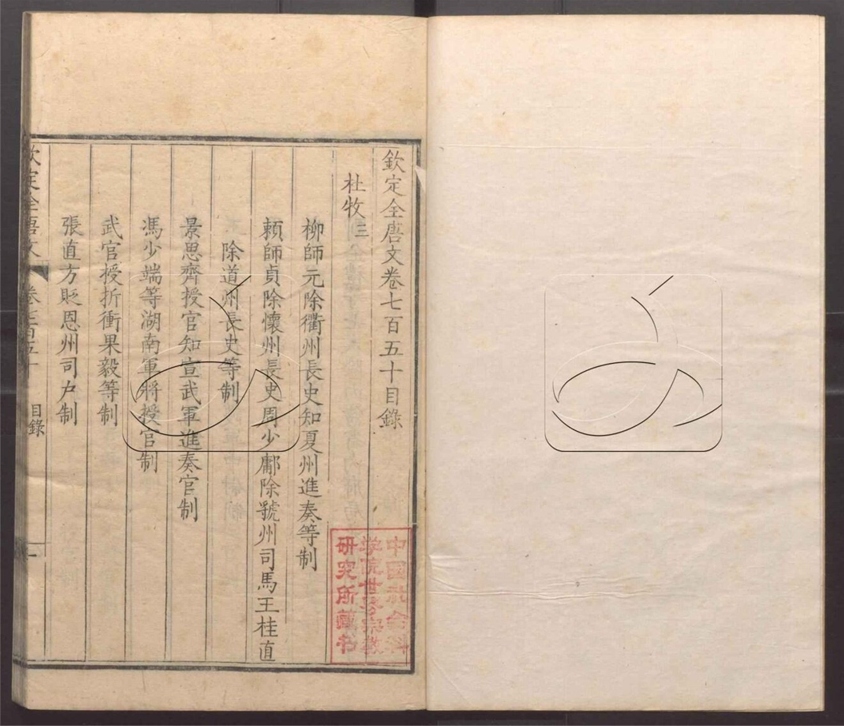 欽定全唐文卷七百五十目錄
杜牧三
柳師元除衢州長史知夏州進奏等制
賴師貞除懷州長史周少鄘除虢州司馬王桂直
除道州長史等制
景思齊授官知宣武軍進奏官制
馮少端等湖南軍將授官制
武官授折衝果毅等制
張直方貶恩州司户制
欽定全唐文 卷七百五十 目錄 一
中国社会科
学院世界宗教
研究所藏书